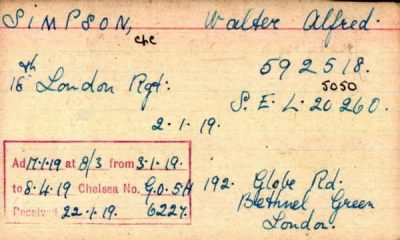 SIMPSON, Walter Alfred.
cpl
18th London Rgt. 592518.
5050
S. E. L. 20260.
2.1.19.
Ad 17.1.19 at 8/3 from 3.1.19.
to 8.4.19 Chelsea No. G.O.5H
Received 22.1.19. 6227.
192. Globe Rd.
Bethnel Green
London.